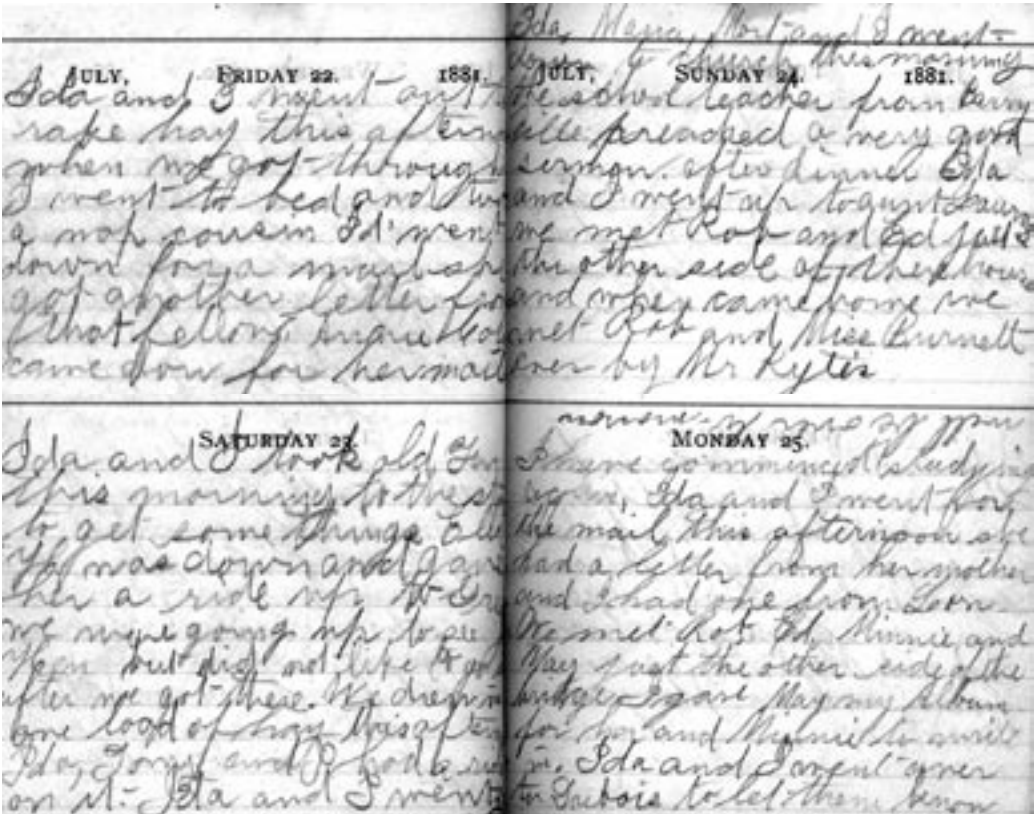 JULY, FRIDAY 22. 1881.
Ida and I went out to
rake hay this aftern
when we got through
I went to bed and
a nap cousin Ed went
down for a mail
got another letter
that fellow
came down for her mail
SATURDAY 23.
Ida and I took old
this morning to the
to get some things
was down and
her a ride up to
we were going up to see
but did not like to
after we got there. We drew
one load of hay this after
Ida, and I had a
on it. Ida and I went
Ida, Maria, Mort and I went
down to church this morning
JULY, SUNDAY 24. 1881.
the school teacher from
ville preached a very good
sermon. after dinner Ida
and I went up to aunt
we met Rob and Ed just
the other side of the house
and when came home we
met Rob and Miss Burnett
over by Mr Kytes
MONDAY 25.
I have commenced studying
again, Ida and I went for
the mail this afternoon she
had a letter from her mother
and I had one from Leon
We met Rob, Ed, Minnie and
May just the other side of the
bridge I gave May my Album
for her and Minnie to write
in. Ida and I went over
to Dubois to let them know